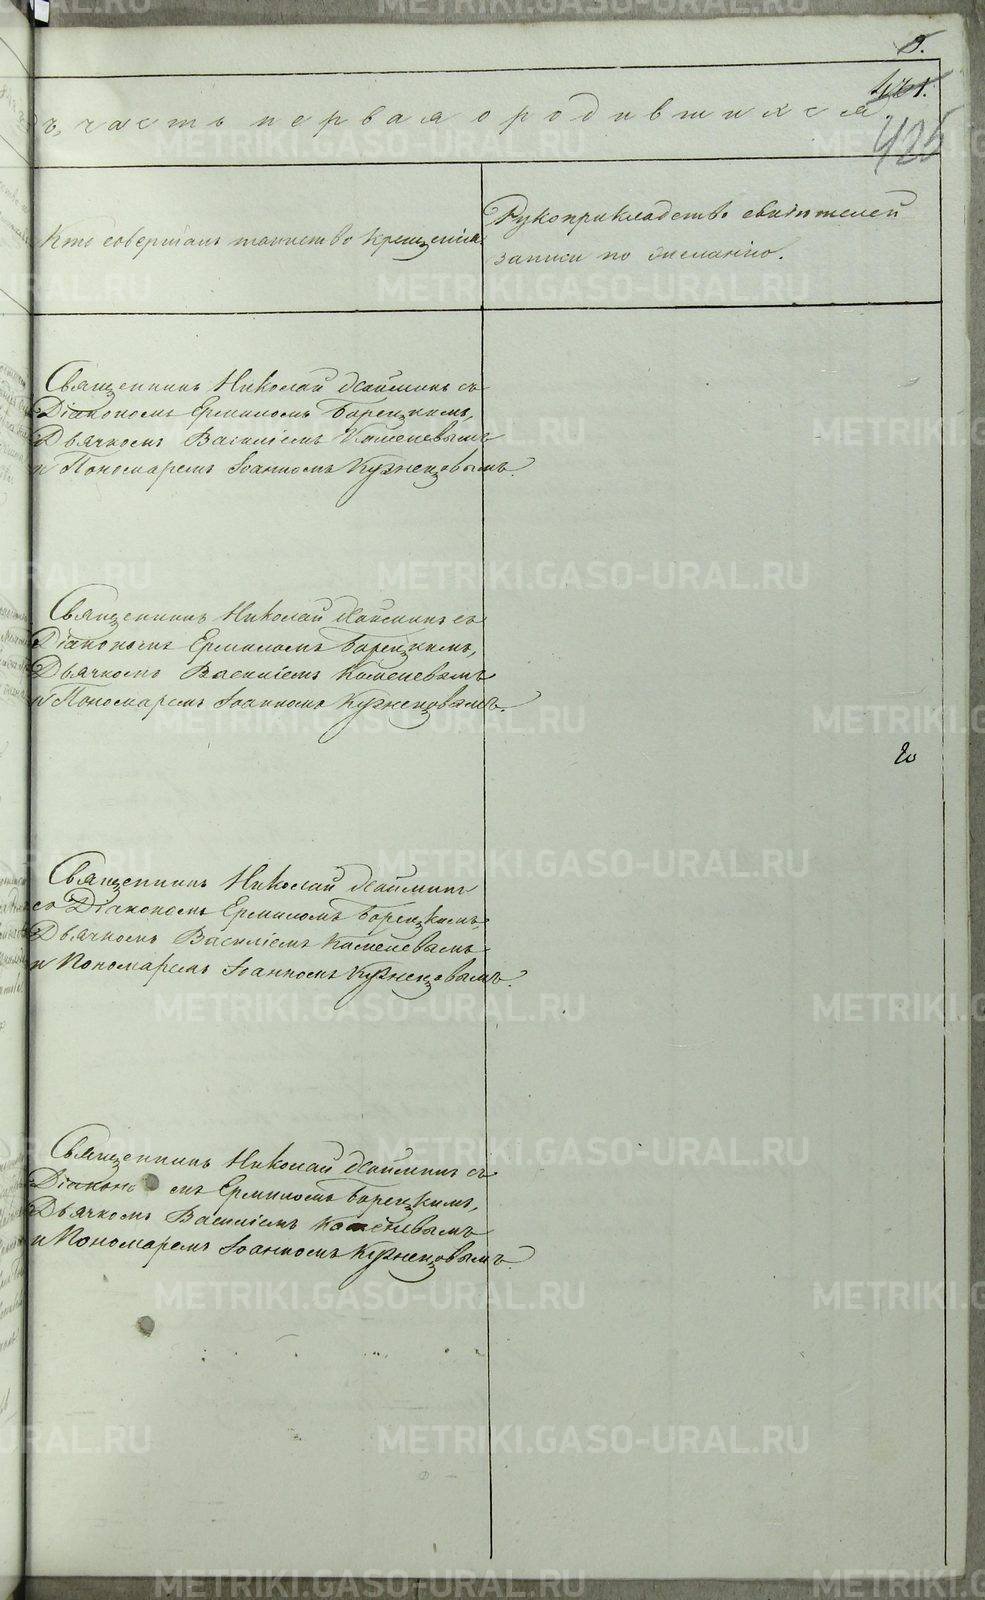 8.
421.
425
дъ, часть первая о родившихся
Кто совершалъ таинство крещенія.
Рукоприкладство свидѣтелей
записи по желанію.
Священникъ Николай съ
Діакономъ Ермиломъ Борецкимъ,
Дьячкомъ Василіемъ Каменевымъ
и Пономаремъ Іоанномъ Кузнецовымъ.
Священникъ Николай съ
Діакономъ Ермиломъ Борецкимъ,
Дьячкомъ Василіемъ Каменевымъ
и Пономаремъ Іоанномъ Кузнецовымъ.
Священникъ Николай
съ Діакономъ Ермиломъ Борецкимъ,
Дьячкомъ Василіемъ Каменевымъ
и Пономаремъ Іоанномъ Кузнецовымъ.
Священникъ Николай съ
Діакономъ Ермиломъ Борецкимъ,
Дьячкомъ Василіемъ Каменевымъ
и Пономаремъ Іоанномъ Кузнецовымъ.
METRIKI.GASO-URAL.RU